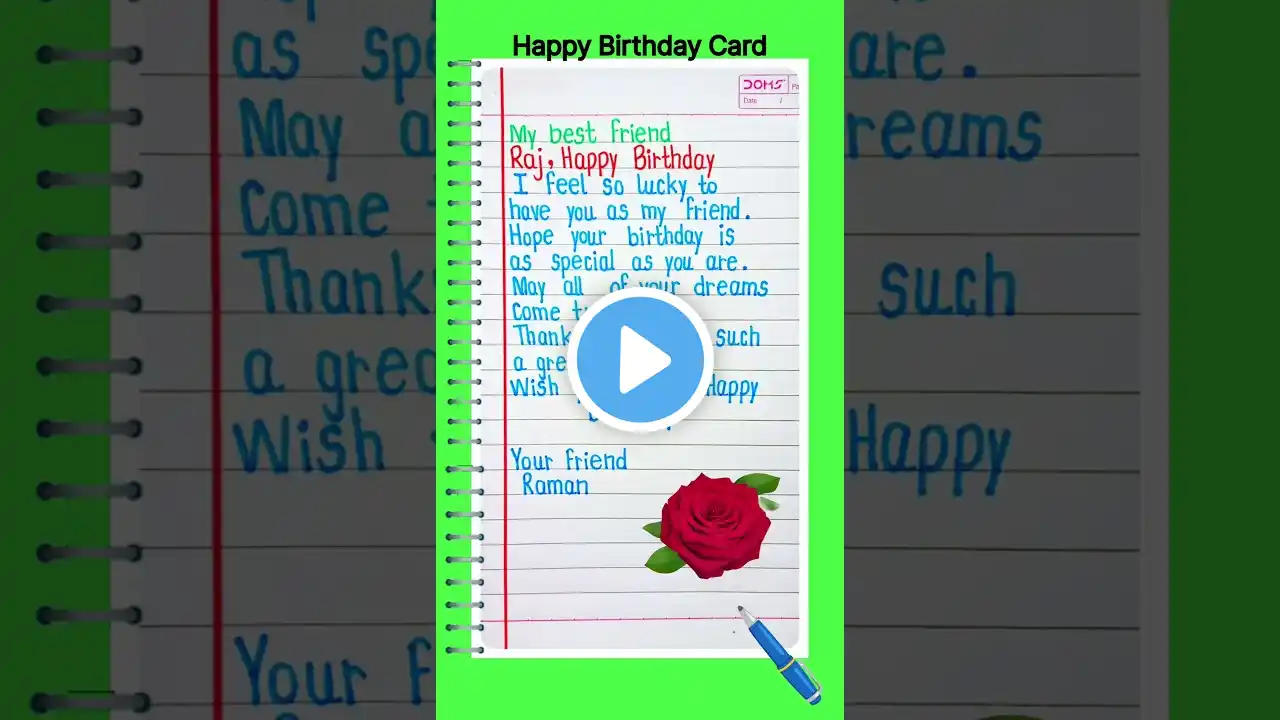 Happy Birthday Card
DOMS
Date /
My best friend
Raj, Happy Birthday
I feel so lucky to
have you as my friend.
Hope your birthday is
as special as you are.
May all of your dreams
Come
Thank such
a
Wish Happy
Your friend
Raman
as are.
May dreams
Come
Thank such
a
Wish Happy
Your